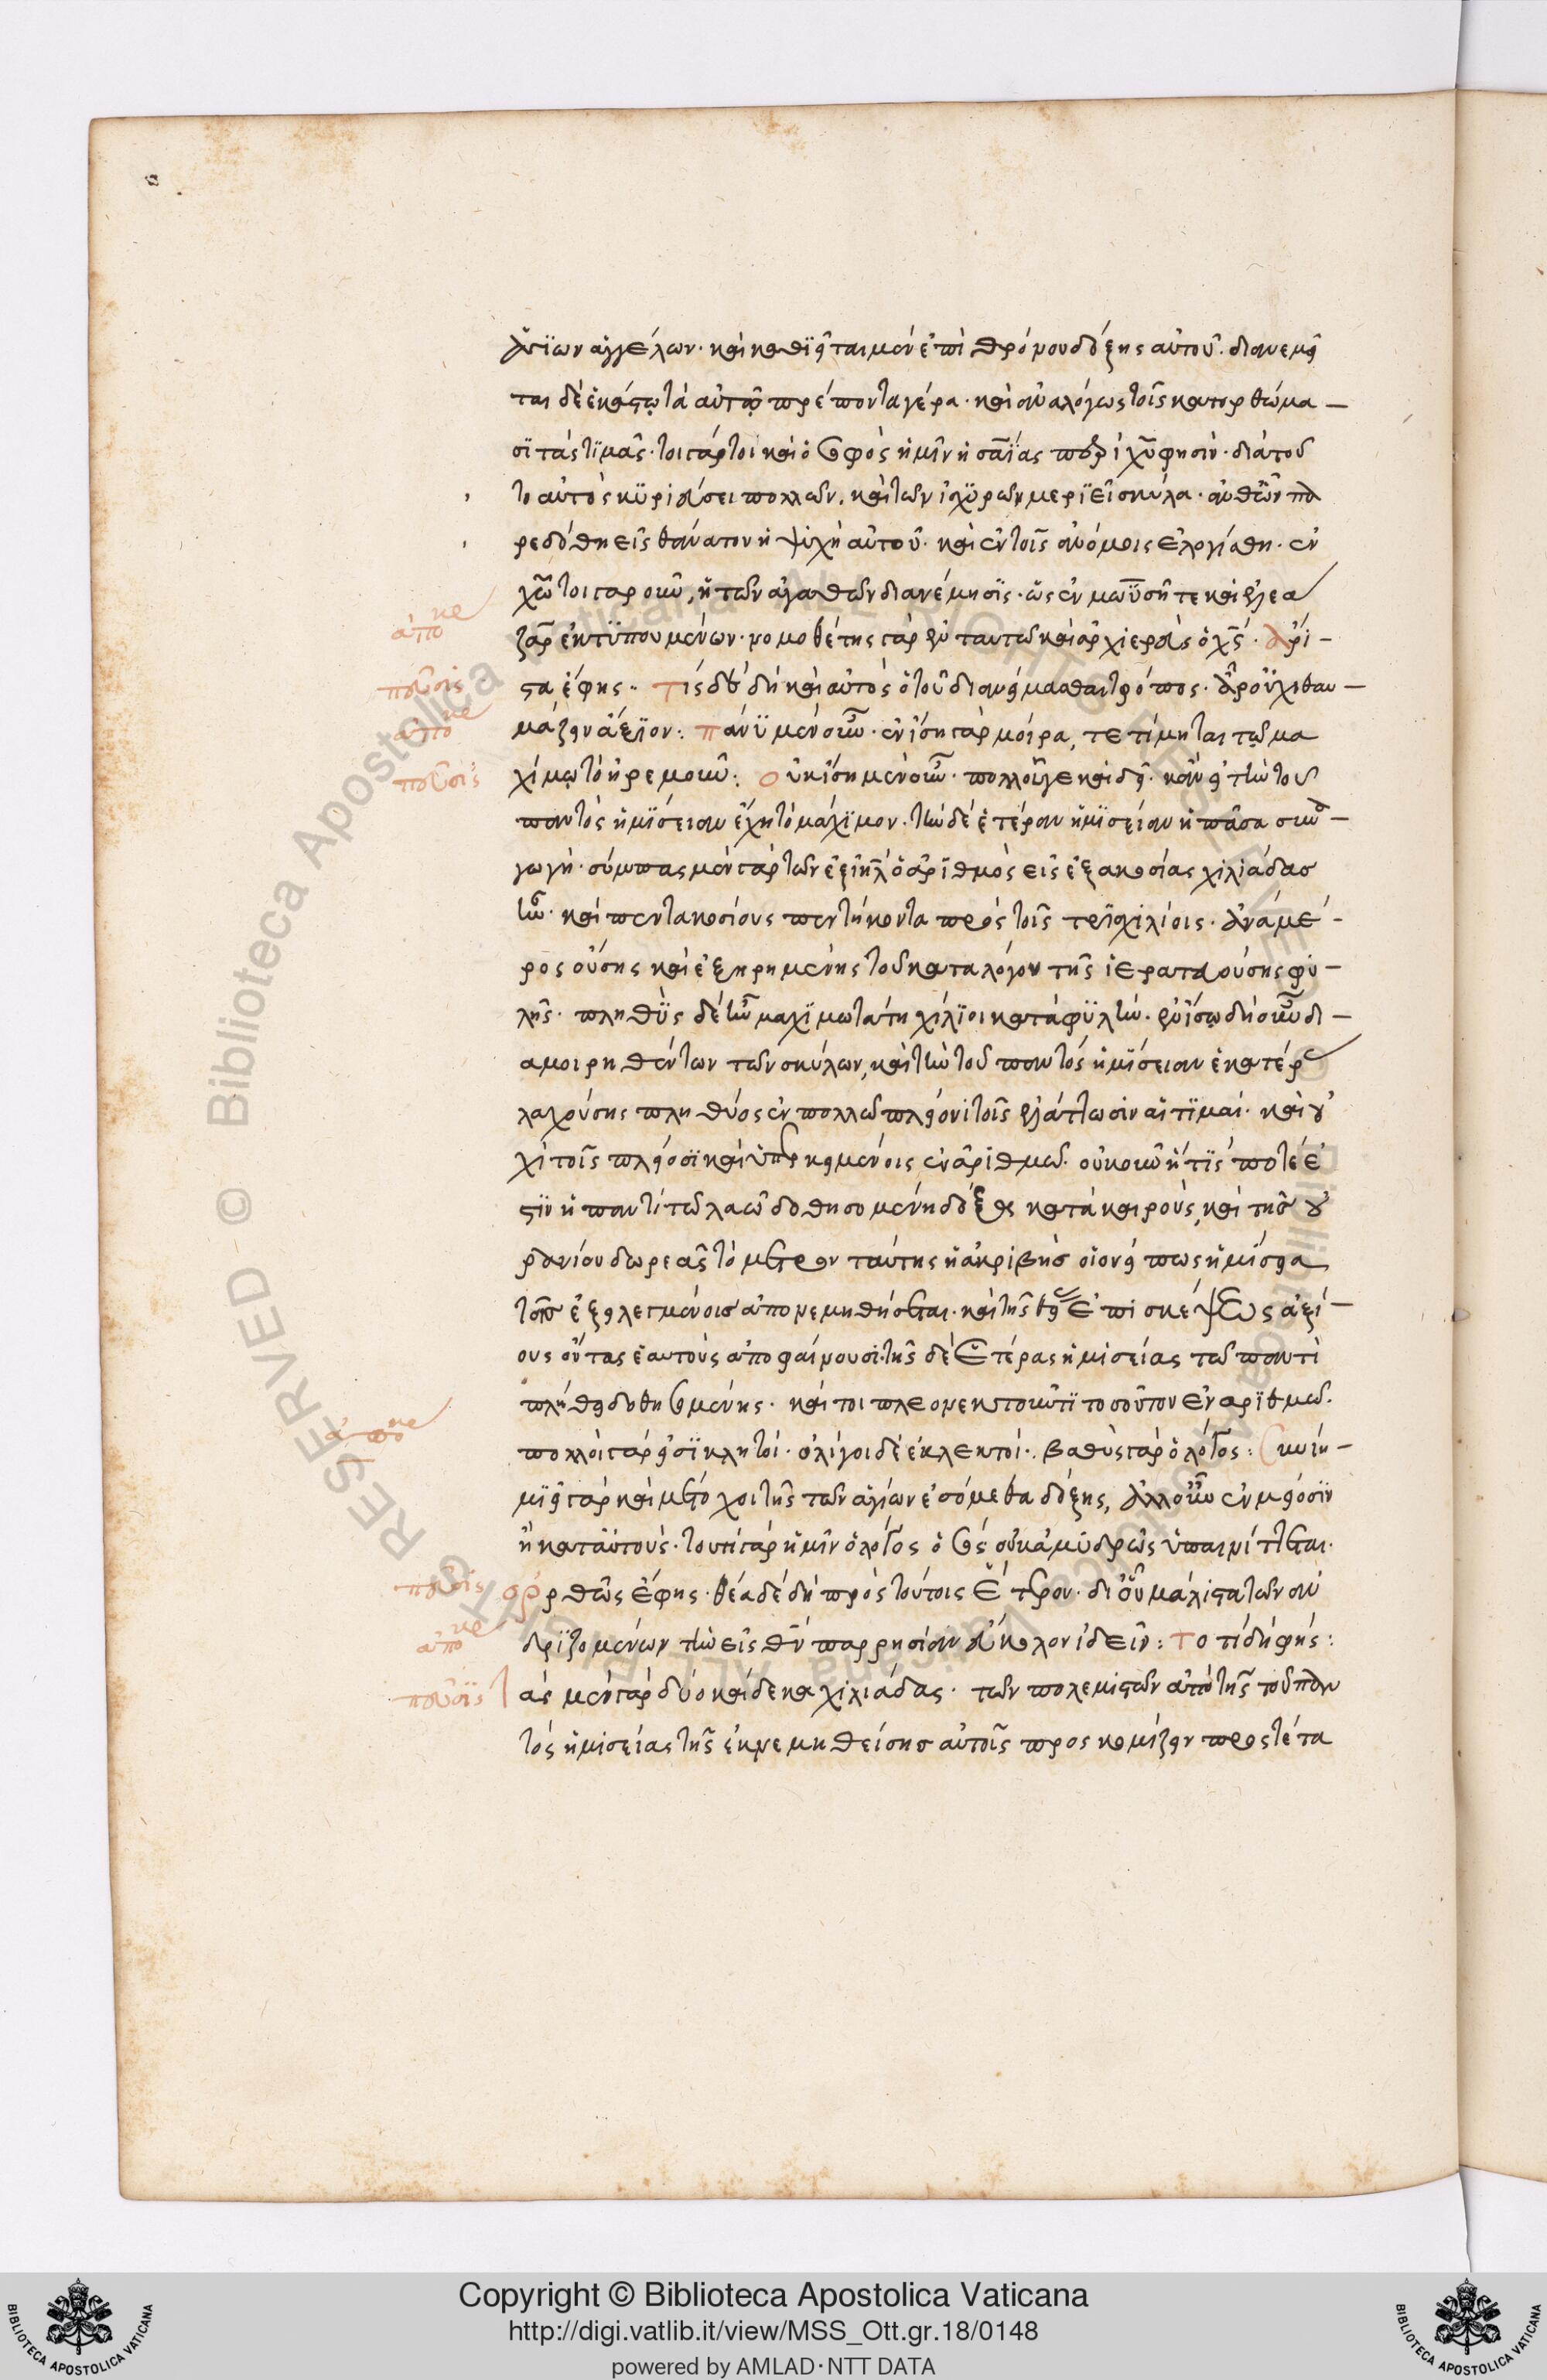 ἁγίων ἀγγέλων· καὶ καθιεῖται μὲν ἐπὶ θρόνου δόξης αὐτοῦ· διανεμεῖ
ται δὲ ἑκάστῳ τὰ αὐτῷ πρέποντα γέρα· καὶ ἀναλόγως τοῖς κατορθώμα –
σι τὰς τιμάς· τοιγάρτοι καὶ ὁ σοφὸς ἡμῖν ἡσαΐας περὶ χῦ φησίν· διὰ τοῦ
το αὐτὸς κυριεύσει πολλῶν. καὶ τῶν ἰσχυρῶν μεριεῖ σκύλα· ἀνθ' ὧν πα
ρεδόθη εἰς θάνατον ἡ ψυχὴ αὐτοῦ· καὶ ἐν τοῖς ἀνόμοις ἐλογίσθη· ἐν
χῶ τοιγαροῦν, ἡ τῶν ἀγαθῶν διανέμησις· ὡς ἐν μωϋσῇ τε καὶ ἐλεα
ζὰρ ἐκτυπουμένων· νομοθέτης γὰρ ἐν ταυτῶ καὶ ἀρχιερεὺς ὁ χς· ἄρι –
στα ἔφης· τίς δὲ δὴ καὶ αὐτὸς ὁ τοῦ διανείμασθαι τρόπος· ἆρ' οὐχὶ θαυ –
μάζειν ἄξιον: πάνυ μὲν οὖν· ἐν ἴσῃ γὰρ μοίρᾳ, τετίμηται τῷ μα
χίμῳ τὸ ἠρεμοῦν: οὐκ ἴσῃ μὲν οὖν· πολλοῦ γε καὶ δεῖ· κἂν εἰ τὴν τοῦ
παντὸς ἡμίσειαν ἔχῃ τὸ μάχιμον· τὴν δὲ ἑτέραν ἡμίσειαν ἡ πᾶσα συνα –
γωγή· σύμπας μὲν γὰρ τῶν ἐξ ιηλ ὁ ἀριθμὸς εἰς ἑξακοσίας χιλιάδας
ἦν· καὶ πεντακοσίους πεντήκοντα πρὸς τοῖς τρισχιλίοις· ἀνὰ μέ –
ρος οὔσης καὶ ἐξῃρημένης τοῦ καταλόγου τῆς ἱερατευούσης φυ –
λῆς· πληθὺς δὲ ἦν μαχιμωτάτη χίλιοι κατὰ φυλήν· ἐν ἴσῳ δὴ οὖν δι –
αμοιρηθέντων τῶν σκύλων, καὶ τὴν τοῦ παντὸς ἡμίσειαν ἑκατέρας
λαχούσης πληθύος ἐν πολλῷ πλείονι τοῖς ἐλάττοσιν αἱ τιμαί· καὶ οὐ
χὶ τοῖς πλείοσι καὶ ὑπερκειμένοις ἐν ἀριθμῷ· οὐκοῦν ἥτις ποτέ ἐ
στιν ἡ παντὶ τῷ λαῷ δοθησομένη δόξα κατὰ καιρούς, καὶ τῆς οὐ
ρανίου δωρεᾶς τὸ μέτρον ταύτης ἡ ἀκριβὴς οἱονεί πως ἡμίσεια
τοῖς ἐξειλεγμένοις ἀπονεμηθήσεται· καὶ τῆς θείας ἐπισκέψεως ἀξί –
ους ὄντας ἑαυτοὺς ἀποφαίνουσι· τῆς δὲ ἑτέρας ἡμισείας τῷ παντὶ
πλήθει δοθησομένης· καίτοι πλεονεκτοῦντι τοσοῦτον ἐν ἀριθμῷ·
πολλοὶ γάρ εἰσι κλητοί· ὀλίγοι δὲ ἐκλεκτοί: βαθὺς γὰρ ὁ λόγος: συνίη –
μι εἰ γὰρ καὶ μέτοχοι τῆς τῶν ἁγίων ἐσόμεθα δόξης, ἀλλ' οὖν ἐν μείοσιν
ἢ κατ' αὐτούς· τουτὶ γὰρ ἡμῖν ὁ λόγος ὁ σὸς οὐκ ἀμυδρῶς ὑπαινίττεται·
ὀρθῶς ἔφης· θέα δὲ δὴ πρὸς τούτοις ἕτερον· δι' οὗ μάλιστα τῶν ἀν
δριζομένων τὴν εἰς θν παρρησίαν εὔκολον ἰδεῖν: τὸ τί δὴ φής:
τὰς μὲν γὰρ δύο καὶ δέκα χιλιάδας· τῶν πολεμιστῶν ἀπὸ τῆς τοῦ παν
τὸς ἡμισείας τῆς ἐκνεμηθείσης αὐτοῖς προσκομίζειν προστέτα
Copyright © Biblioteca Apostolica Vaticana
http://digi.vatlib.it/view/MSS_Ott.gr.18/0148
powered by AMLAD·NTT DATA
BIBLIOTECA APOSTOLICA VATICANA
BIBLIOTECA APOSTOLICA VATICANA